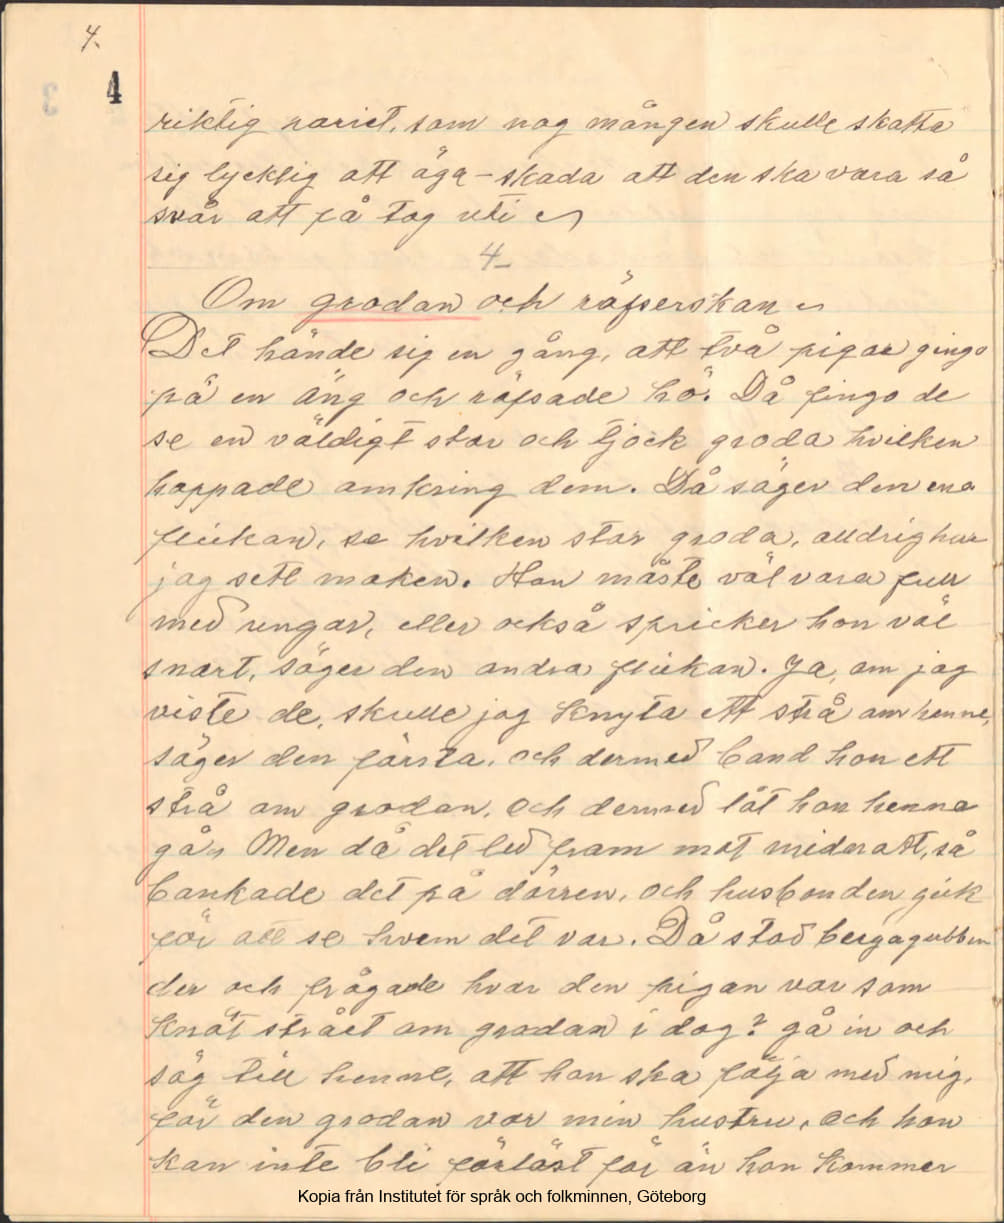 4.
4
riktig rariet, som nog mången skulle skatta
sig lycklig att äga – skada att den ska vara så
svår att få tag uti
4
Om grodan och räfserskan
Det hände sig en gång, att två pigor gingo
på en äng och räfsade hö. Då fingo de
se en väldigt stor och tjock groda hvilken
hoppade omkring dem. Då säger den ena
flickan, se hvilken stor groda, alldrig har
jag sett maken. Hon måste väl vara full
med ungar, eller också spricker hon väl
snart, säger den andra flickan. Ja, om jag
viste de, skulle jag knyta ett strå om henne,
säger den första, och dermed band hon ett
strå om grodan, och dermed lät hon henne
gå, Men då det led fram mot midnatt, så
bankade det på dörren, och husbonden gick
för att se hvem det var. Då stod bergagubben
der och frågade hvar den pigan var som
knöt strået om grodan i dag? gå in och
säg till henne, att hon ska följa med mig,
för den grodan var min hustru, och hon
kan inte bli förlöst för än hon kommer
Kopia från Institutet för språk och folkminnen, Göteborg